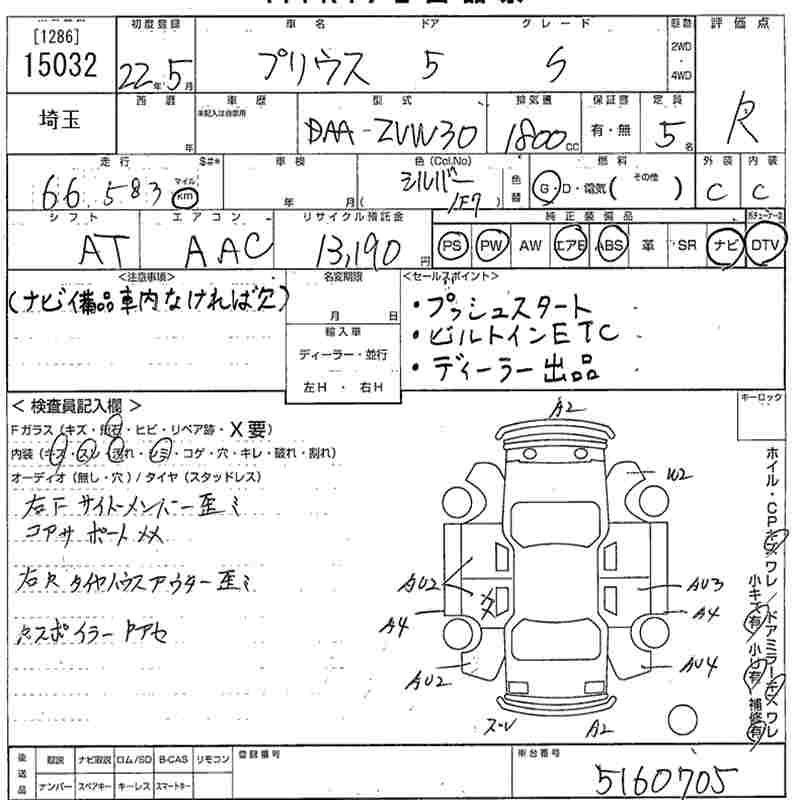 [1286]
15032
埼玉
初度登録
22年5月
車名
プリウス
ドア
5
グレード
S
駆動
2WD
・
4WD
評価点
R
西暦
年
車歴
未記入は自家用
型式
DAA-ZVW30
排気量
1800cc
保証書
有・無
定員
5名
走行
$#*
66,583 マイル km
車検
年 月
色(Col.No)
シルバー
(1F7)
色替
燃料
G・D・電気( その他 )
外装
C
内装
C
シフト
AT
エアコン
AAC
リサイクル預託金
13,190円
純正装備品
PS PW AW エアB ABS 革 SR ナビ DTV
<注意事項>
(ナビ備品車内なければ欠)
名変期限
月 日
輸入車
ディーラー・並行
左H ・ 右H
<セールスポイント>
・プッシュスタート
・ビルトインETC
・ディーラー出品
< 検査員記入欄 >
Fガラス(キズ・飛石・ヒビ・リペア跡・X要)
内装(キズ・スレ・汚れ・シミ・コゲ・穴・キレ・破れ・割れ)
オーディオ(無し・穴)/タイヤ(スタッドレス)
右F サイトーメンバー歪ミ
コアサポートメメ
右R タイヤハウスアウター歪ミ
スポイラー
キーロック
A2
W2
AU2
AU3
A4
A4
AU2
AU4
スレ
A2
ホイル・CPキズワレ/ドアミラーキズワレ
小キズ有 小凹有 補修有
後送品
取説 ナビ取説 ロム/SD B-CAS リモコン
ナンバー スペアキー キーレス スマートキー
登録番号
車台番号
5160705